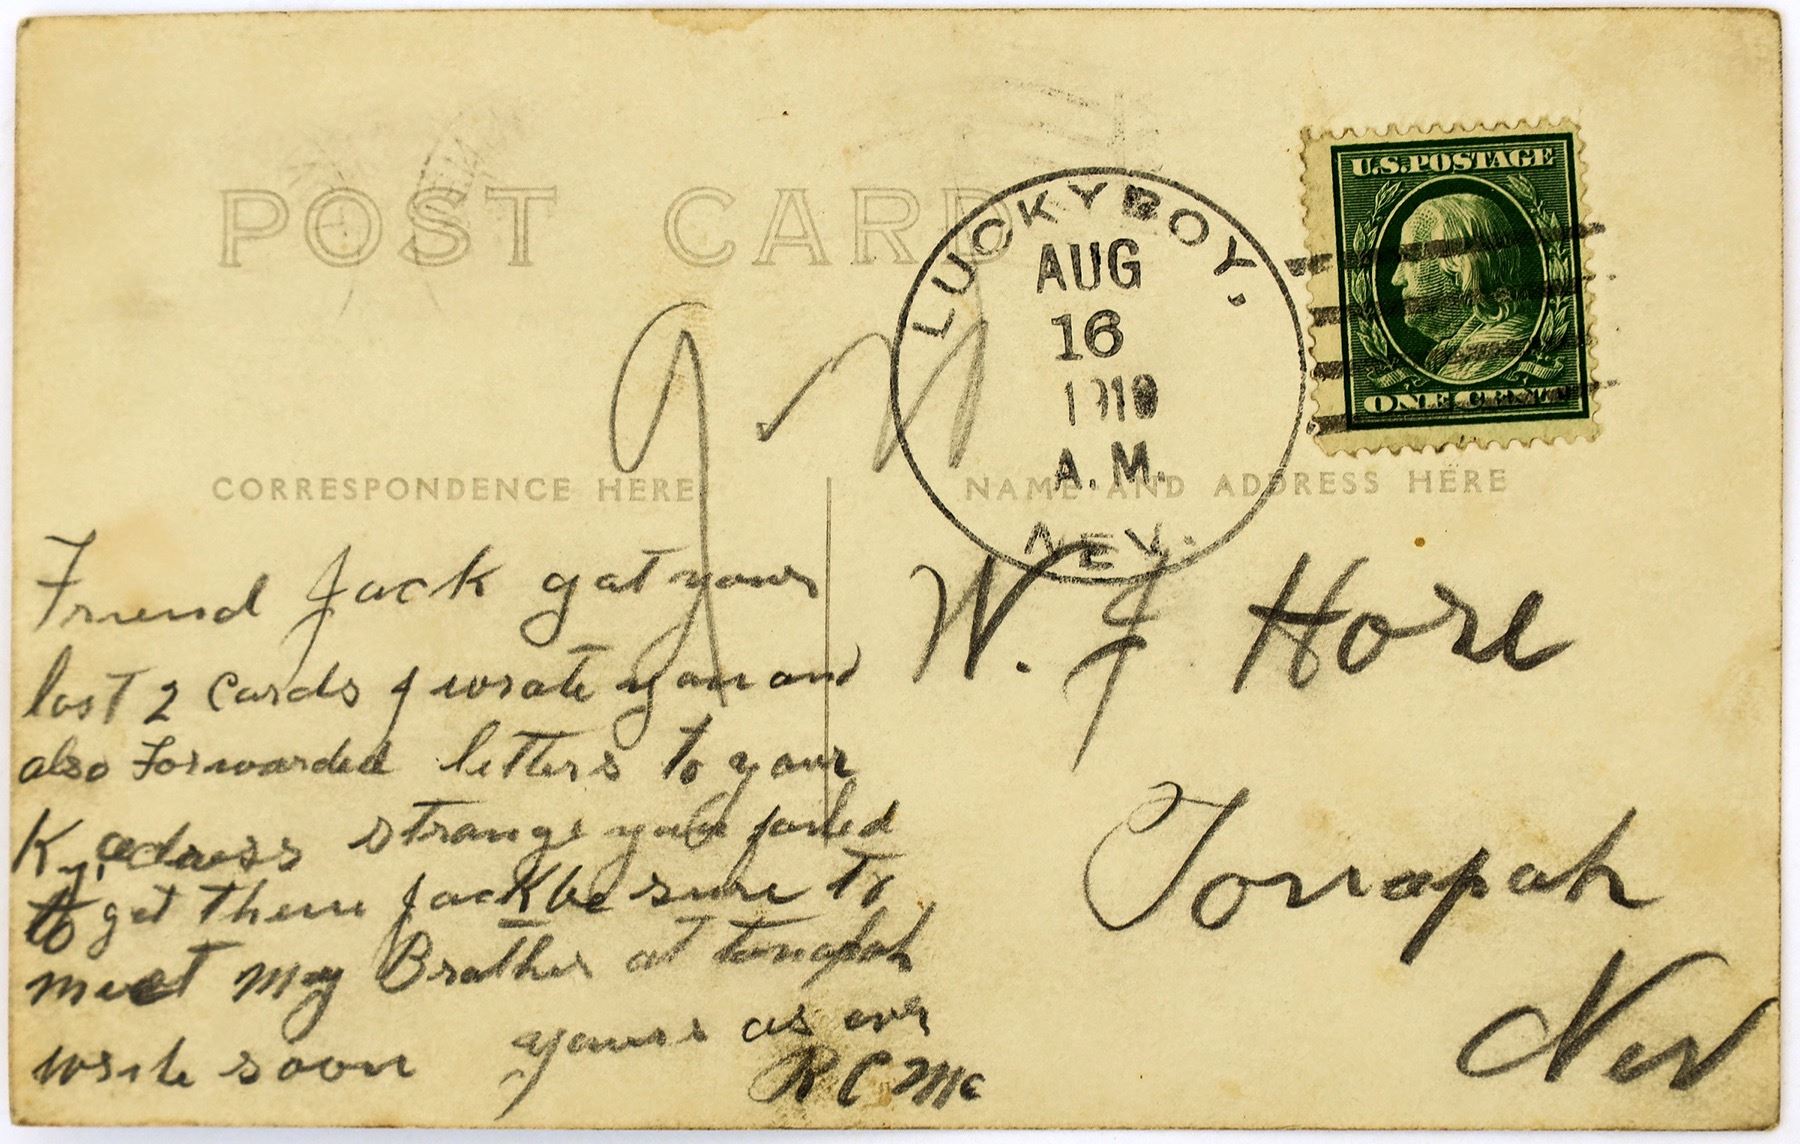 POST CARD
LUCKYBOY,
AUG
16
1910
A.M.
NEV.
U.S. POSTAGE
ONE CENT
CORRESPONDENCE HERE
NAME AND ADDRESS HERE
Friend Jack got your
last 2 cards I wrote you and
also Forwarded letters to your
Ky, adress strange you failed
to get them Jack be sure to
meet my Brother at tonopah
write soon yours as ever
R C Mc
W. J Hore
Tonopah
Nev